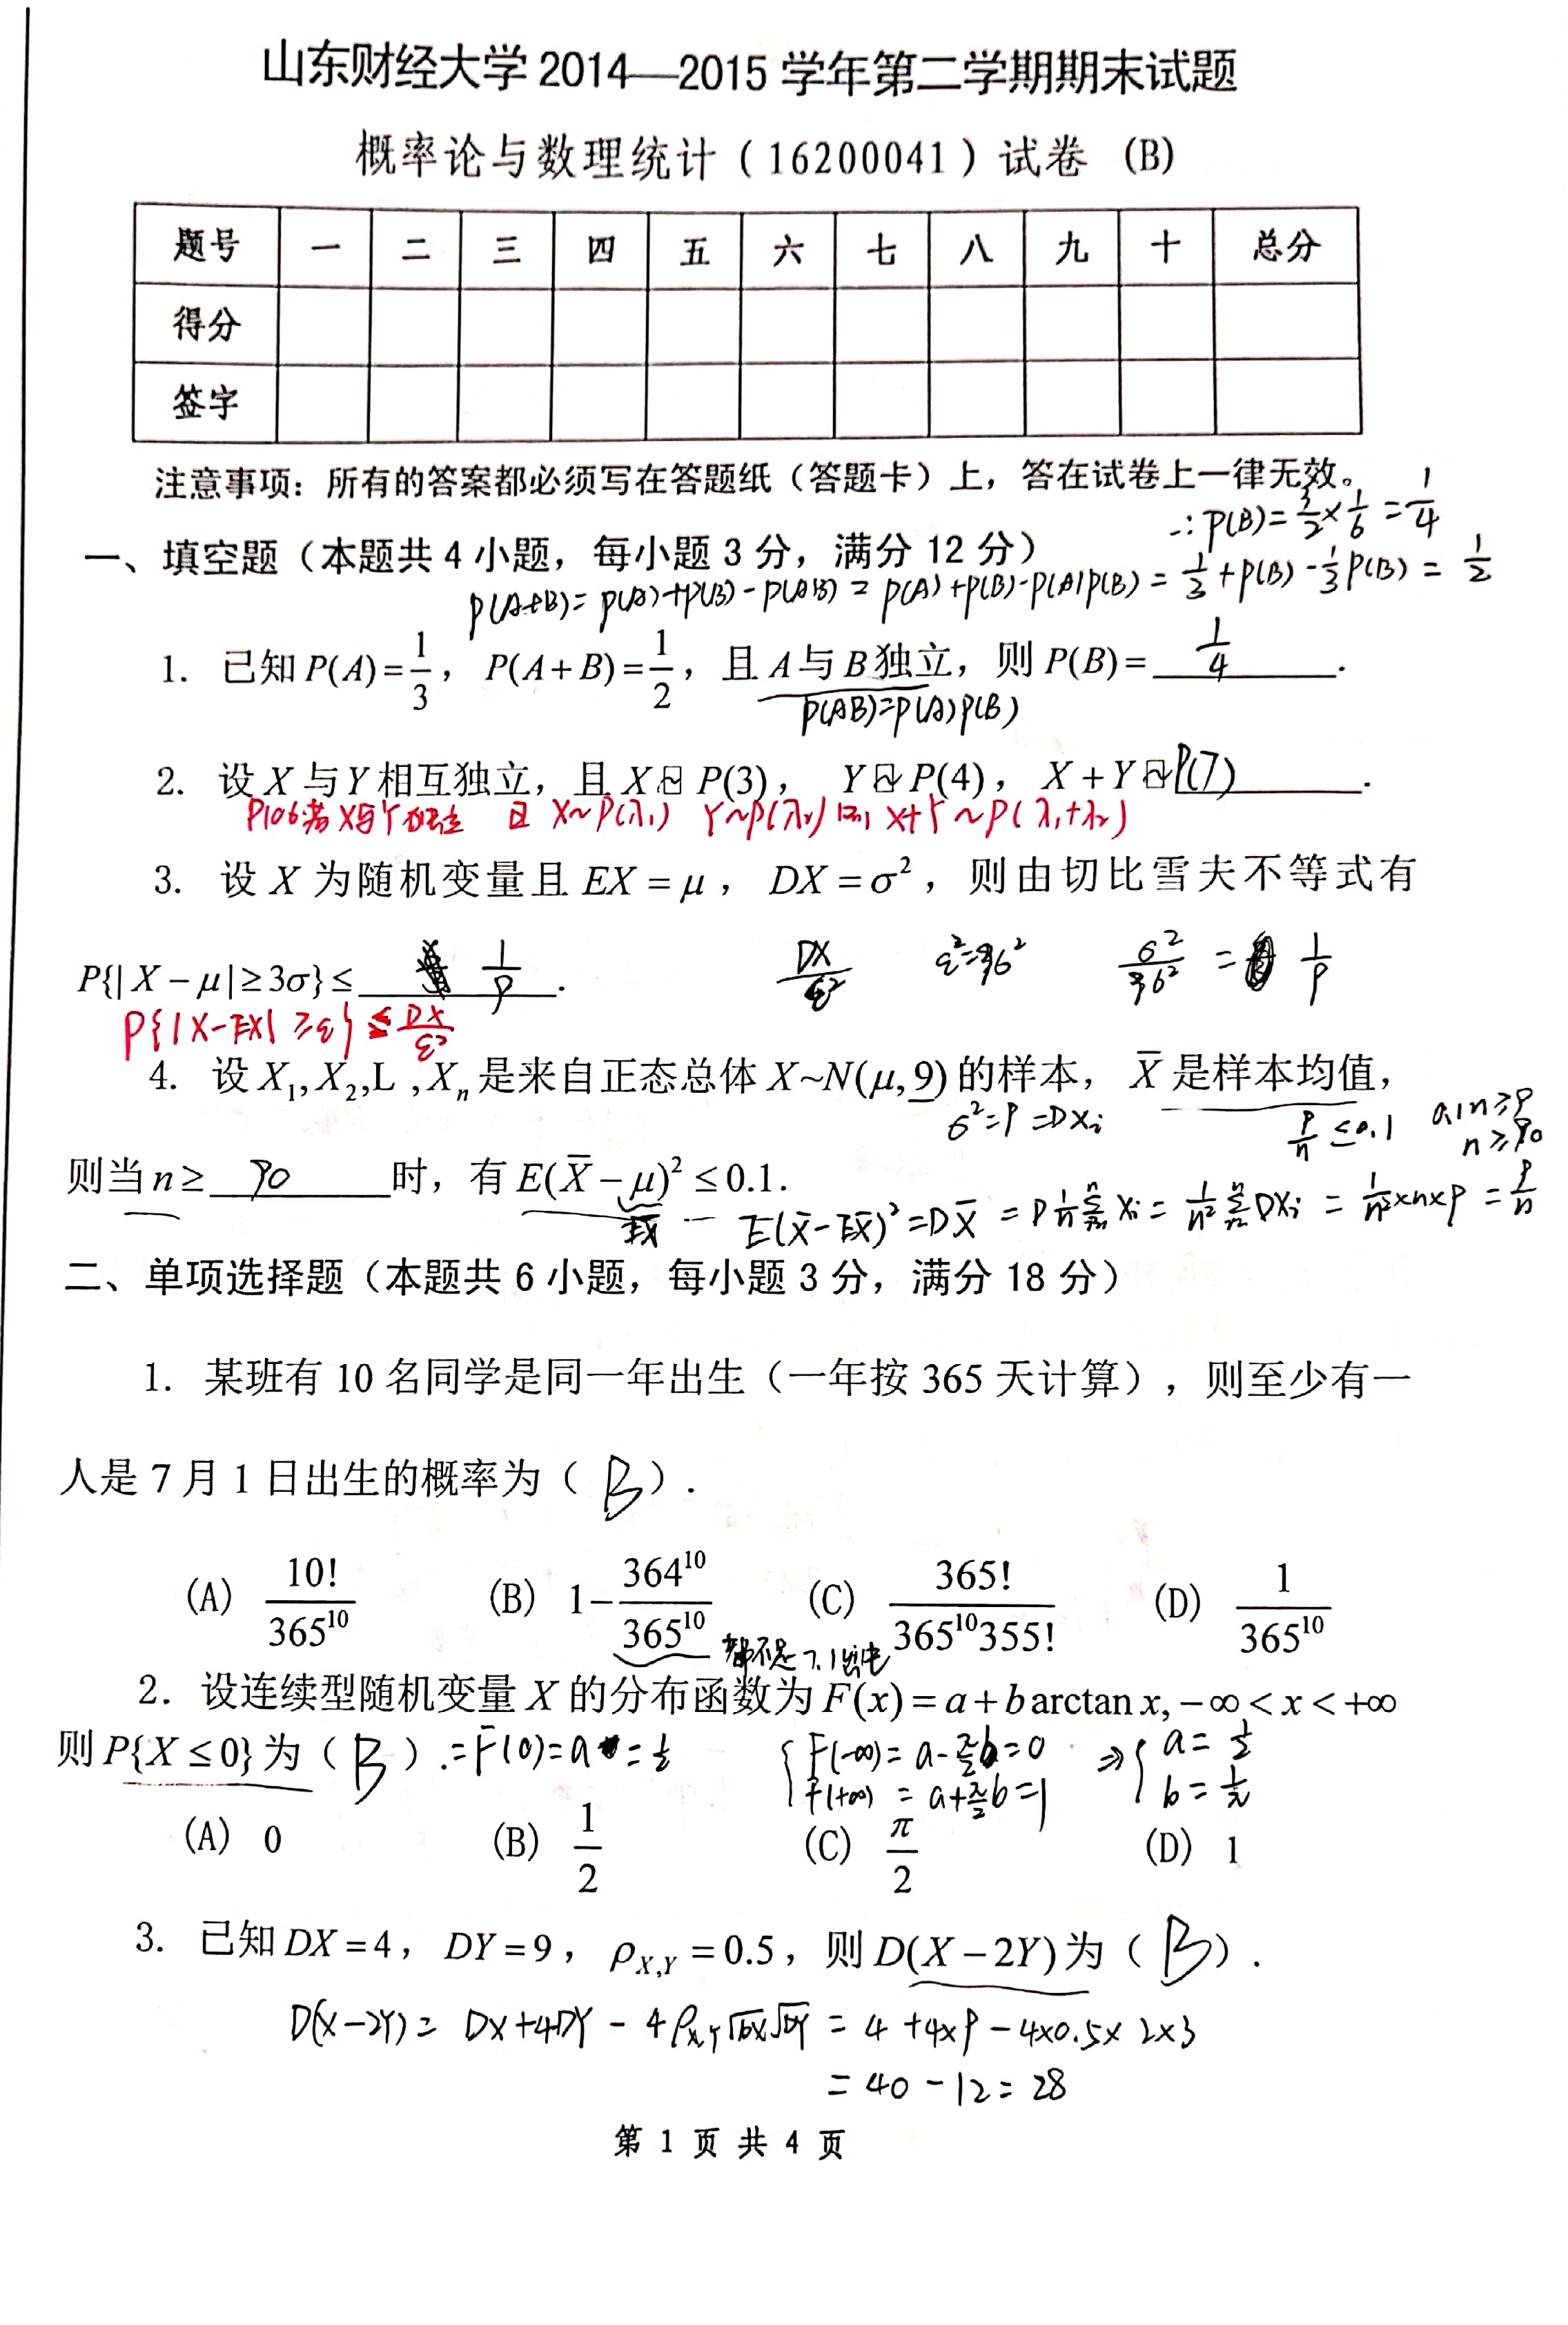 山东财经大学 2014—2015 学年第二学期期末试题
概率论与数理统计（16200041）试卷 (B)
题号 一 二 三 四 五 六 七 八 九 十 总分
得分
签字
注意事项：所有的答案都必须写在答题纸（答题卡）上，答在试卷上一律无效。
∴ P(B)=3/2×1/6=1/4
一、填空题（本题共 4 小题，每小题 3 分，满分 12 分）
P(A+B)=P(A)+P(B)-P(AB)=P(A)+P(B)-P(A)P(B)=1/3+P(B)-1/3P(B)=1/2
1. 已知 P(A)=1/3，P(A+B)=1/2，且 A 与 B 独立，则 P(B)= 1/4 .
P(AB)=P(A)P(B)
2. 设 X 与 Y 相互独立，且 X~P(3)，Y~P(4)，X+Y~P(7) .
P106 若X与Y独立 且 X~P(λ₁) Y~P(λ₂) 则 X+Y~P(λ₁+λ₂)
3. 设 X 为随机变量且 EX=μ，DX=σ²，则由切比雪夫不等式有
P{|X-μ|≥3σ}≤ 1/9 . DX/ε² ε²=9σ² σ²/9σ² = 1/9
P{|X-EX|≥ε}≤DX/ε²
4. 设 X₁,X₂,L ,Xₙ 是来自正态总体 X~N(μ,9) 的样本，X̄ 是样本均值，
σ²=9=DXᵢ 9/n≤0.1 0.1n≥9 n≥90
则当 n≥ 90 时，有 E(X̄-μ)²≤0.1.
EX̄ E(X̄-EX̄)²=DX̄=D1/n∑Xᵢ=1/n²∑DXᵢ=1/n²×n×9=9/n
二、单项选择题（本题共 6 小题，每小题 3 分，满分 18 分）
1. 某班有 10 名同学是同一年出生（一年按 365 天计算），则至少有一
人是 7 月 1 日出生的概率为（ B ）.
(A) 10!/365¹⁰ (B) 1-364¹⁰/365¹⁰ (C) 365!/365¹⁰355! (D) 1/365¹⁰
都不是7.1出生
2. 设连续型随机变量 X 的分布函数为 F(x)=a+b arctan x, -∞<x<+∞
则 P{X≤0} 为（ B ）. =F(0)=a=1/2 { F(-∞)=a-π/2b=0 F(+∞)=a+π/2b=1 ⇒ { a=1/2 b=1/π
(A) 0 (B) 1/2 (C) π/2 (D) 1
3. 已知 DX=4，DY=9，ρ_{X,Y}=0.5，则 D(X-2Y) 为（ B ）.
D(X-2Y)=DX+4DY-4ρ_{X,Y}√DX√DY=4+4×9-4×0.5×2×3
=40-12=28
第 1 页 共 4 页